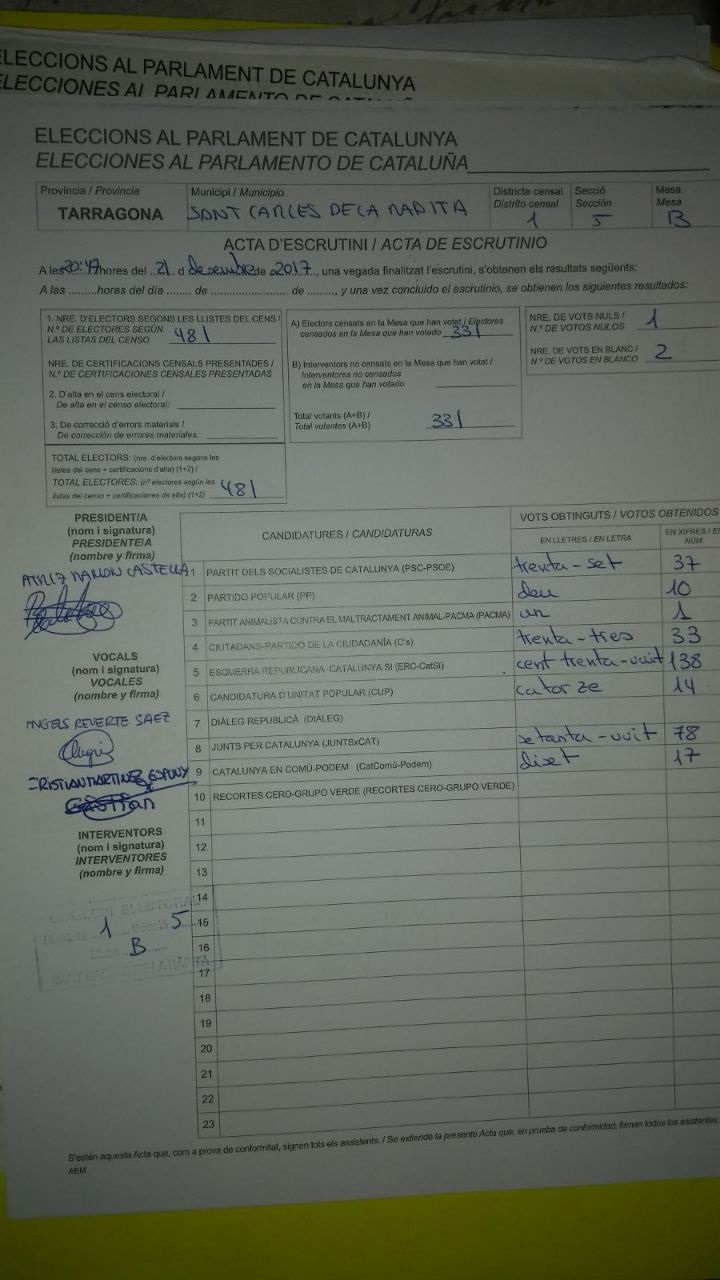 ELECCIONS AL PARLAMENT DE CATALUNYA
ELECCIONES AL PARLAMENTO DE
ELECCIONS AL PARLAMENT DE CATALUNYA
ELECCIONES AL PARLAMENTO DE CATALUÑA
Província / Provincia
TARRAGONA
Municipi / Municipio
SANT CARLES DE LA RAPITA
Districte censal
Distrito censal
1
Secció
Sección
5
Mesa
Mesa
B
ACTA D'ESCRUTINI / ACTA DE ESCRUTINIO
A les 20:47 hores del ..21.. d desembre de 2017.., una vegada finalitzat l'escrutini, s'obtenen els resultats següents:
A las .........horas del día ....... de ...................... de ........, y una vez concluido el escrutinio, se obtienen los siguientes resultados:
1. NRE. D'ELECTORS SEGONS LES LLISTES DEL CENS /
N.º DE ELECTORES SEGÚN
LAS LISTAS DEL CENSO 481
NRE. DE CERTIFICACIONS CENSALS PRESENTADES /
N.º DE CERTIFICACIONES CENSALES PRESENTADAS
2. D'alta en el cens electoral /
De alta en el censo electoral:
3. De correcció d'errors materials /
De corrección de errores materiales:
TOTAL ELECTORS: (nre. d'electors segons les
llistes del cens + certificacions d'alta) (1+2) /
TOTAL ELECTORES: (nº electores según las
listas del censo + certificaciones de alta) (1+2) 481
A) Electors censats en la Mesa que han votat / Electores
censados en la Mesa que han votado 331
B) Interventors no censats en la Mesa que han votat /
Interventores no censados
en la Mesa que han votado
Total votants (A+B) /
Total votantes (A+B) 331
NRE. DE VOTS NULS /
N.º DE VOTOS NULOS 1
NRE. DE VOTS EN BLANC /
N.º DE VOTOS EN BLANCO 2
PRESIDENT/A
(nom i signatura)
PRESIDENTE/A
(nombre y firma)
CASTELLA
VOCALS
(nom i signatura)
VOCALES
(nombre y firma)
ANGELS REVERTE SAEZ
CRISTIAN MARTINEZ ESPUNY
Cristian
INTERVENTORS
(nom i signatura)
INTERVENTORES
(nombre y firma)
COL·LEGI ELECTORAL
1 Secció 5
B
CANDIDATURES / CANDIDATURAS
VOTS OBTINGUTS / VOTOS OBTENIDOS
EN LLETRES / EN LETRA
EN XIFRES / EN
NÚM
1 PARTIT DELS SOCIALISTES DE CATALUNYA (PSC-PSOE) trenta-set 37
2 PARTIDO POPULAR (PP) deu 10
3 PARTIT ANIMALISTA CONTRA EL MALTRACTAMENT ANIMAL-PACMA (PACMA) un 1
4 CIUTADANS-PARTIDO DE LA CIUDADANÍA (C's) trenta-tres 33
5 ESQUERRA REPUBLICANA-CATALUNYA SI (ERC-CatSí) cent trenta-vuit 138
6 CANDIDATURA D'UNITAT POPULAR (CUP) catorze 14
7 DIÀLEG REPUBLICÀ (DIÀLEG)
8 JUNTS PER CATALUNYA (JUNTSxCAT) setanta-vuit 78
9 CATALUNYA EN COMÚ-PODEM (CatComú-Podem) diset 17
10 RECORTES CERO-GRUPO VERDE (RECORTES CERO-GRUPO VERDE)
11
12
13
14
15
16
17
18
19
20
21
22
23
S'estén aquesta Acta que, com a prova de conformitat, signen tots els assistents. / Se extiende la presente Acta que, en prueba de conformidad, firman todos los asistentes.
AEM